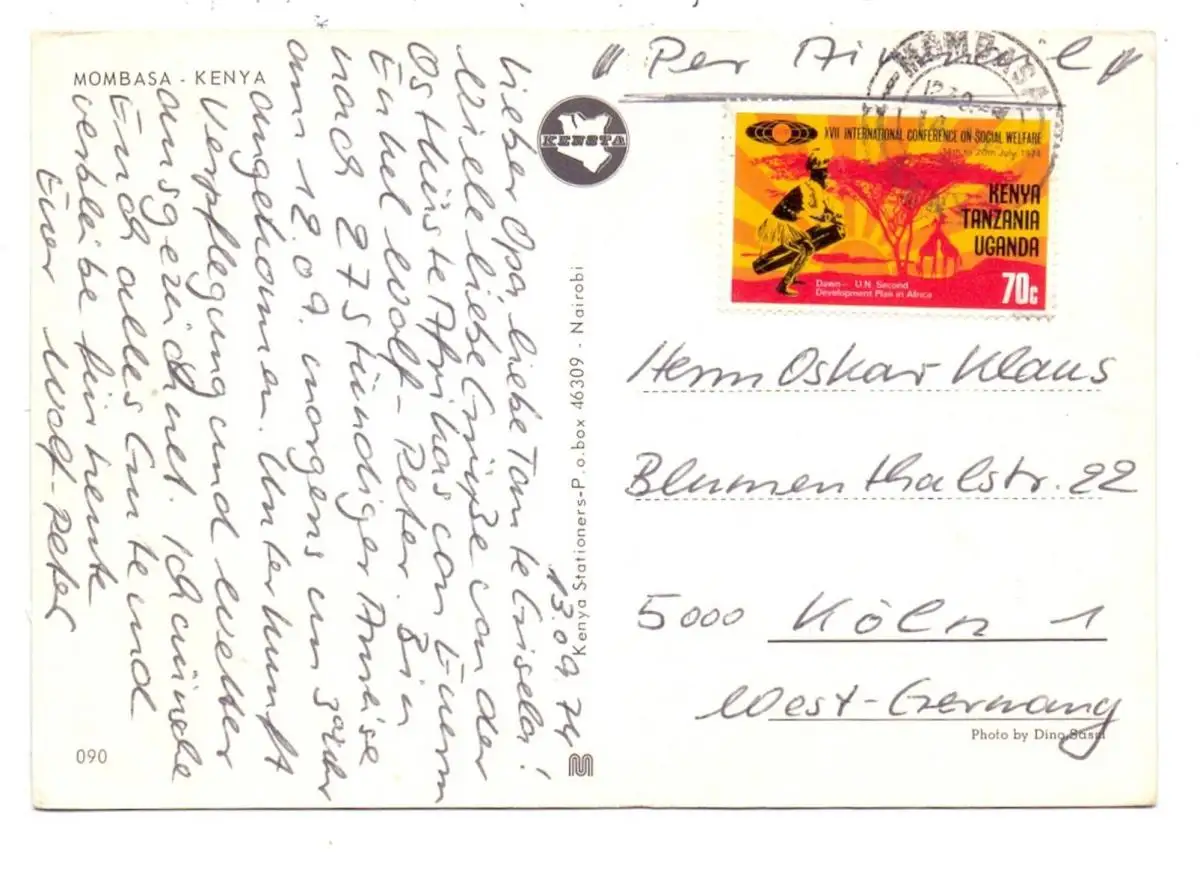 MOMBASA - KENYA
13.09.74
Lieber Opa, liebe Tante Gisela!
Viele liebe Grüße von der
Ostküste Afrikas von Euerm
Enkel Wolf-Peter. Bin
nach 27 Stündiger Anreise
am 12.09. morgens um 3 Uhr
angekommen. Unterkunft
Verpflegung und Wetter
ausgezeichnet. Ich wünsche
Euch alles Gute und
verbleibe für heute
Euer Wolf-Peter
090
KENSTA
Kenya Stationers-P.o.box 46309 - Nairobi
"Per Airmail"
MOMBASA
XVII INTERNATIONAL CONFERENCE ON SOCIAL WELFARE
14th to 20th July, 1974
KENYA
TANZANIA
UGANDA
Dawn - U.N. Second
Development Plan in Africa
70c
Herrn Oskar Klaus
Blumenthalstr. 22
5000 Köln 1
West-Germany
Photo by Dino Sassi